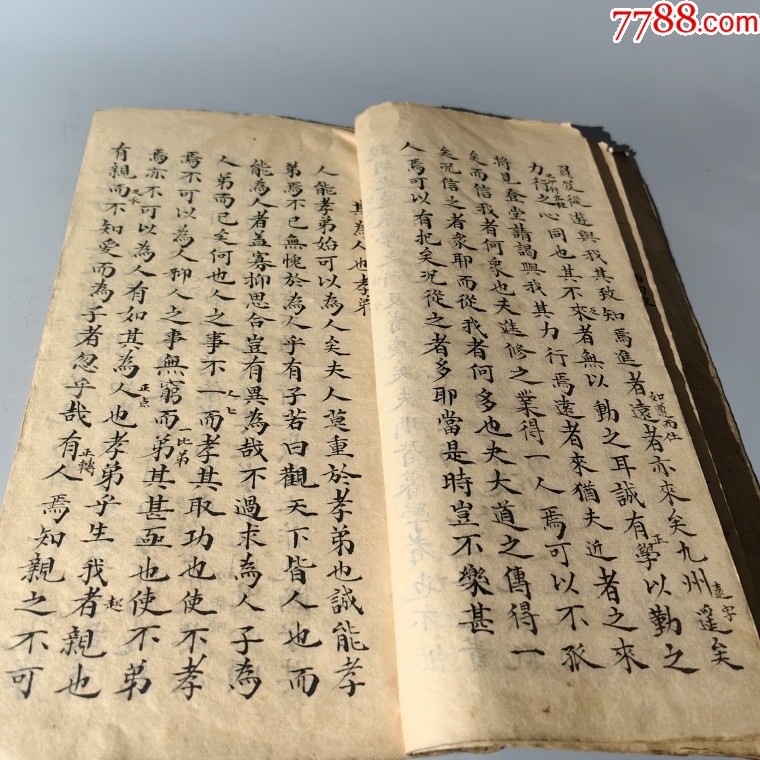 7788.com
笈從遊與我其致知焉進者遠者亦來矣九州遙矣
遠字
力行之心同也其不來者無以動之耳誠有學以勤之
正
將見登堂請謁與我其力行焉遠者來猶夫近者之來
矣而信我者何衆也夫進修之業得一人焉可以不孤
矣況信之者衆耶而從我者何多也夫大道之傳得一
人焉可以有把矣況從之者多耶當是時豈不樂甚
其為人也孝弟
人能孝弟始可以為人矣夫人莫重於孝弟也誠能孝
弟焉不已無愧於為人乎有子若曰觀天下皆人也而
能為人者蓋寡抑思合豈有異為哉不過求為人子為
人弟而已矣何也人之事不一而孝其取功也使不孝
焉不可以為人抑人之事無窮而弟其甚亟也使不弟
一比弟
焉亦不可以為人有如其為人也孝弟乎生我者親也
正点
起
有親而不知愛而為子者忽乎哉有人焉知親之不可
正轉